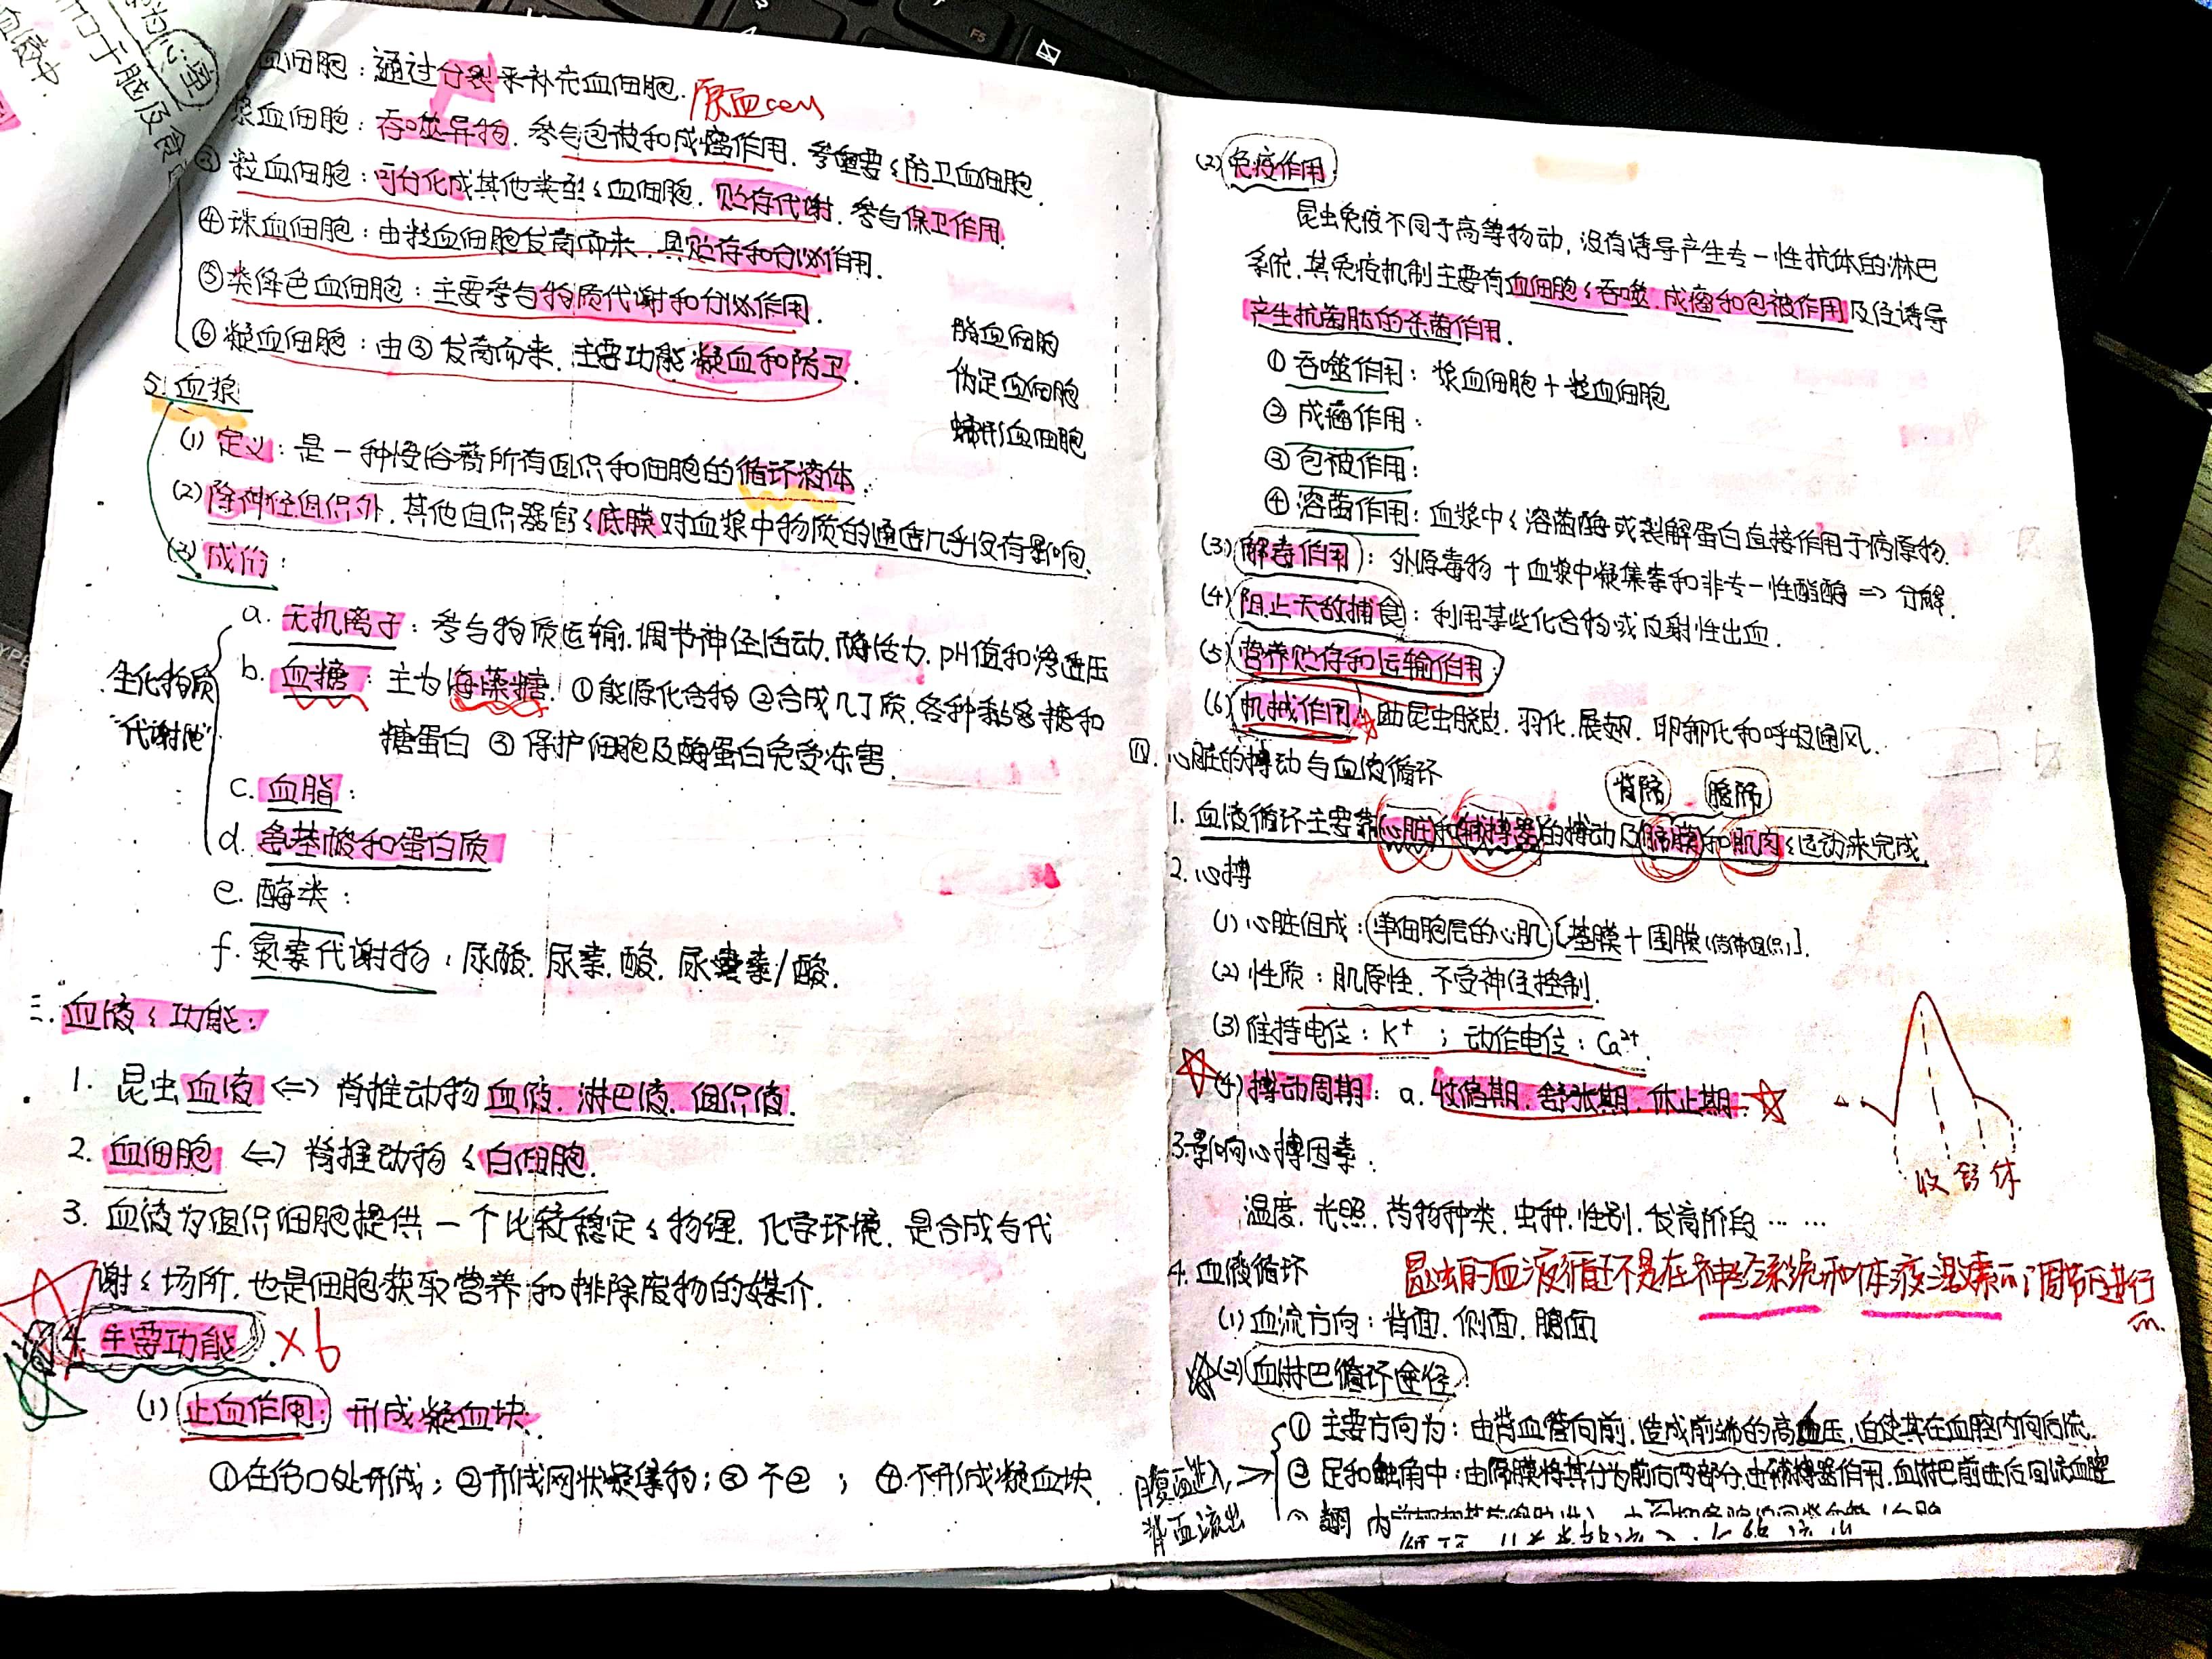 血细胞：通过分裂来补充血细胞.
原血cell
浆血细胞：吞噬异物.参与包被和成瘤作用.重要〈防卫血细胞.
③粒血细胞：可分化成其他类型〈血细胞.贮存代谢.参与保卫作用.
④珠血细胞：由粒血细胞发育而来.具贮存和分泌作用.
⑤类绛色血细胞：主要参与物质代谢和分泌作用.
⑥凝血细胞：由③发育而来.主要功能凝血和防卫.
脂血细胞
伪足血细胞
蠕形血细胞
5.血浆
(1)定义：是一种浸浴着所有组织和细胞的循环液体.
(2)除神经组织外.其他组织器官〈底膜对血浆中物质的通透几乎没有影响.
(3)成份：
a.无机离子：参与物质运输.调节神经活动.酶活力.pH值和渗透压
b.血糖：主为海藻糖.①能源化合物②合成几丁质.各种黏多糖和
糖蛋白③保护细胞及酶蛋白免受冻害.
生化物质
"代谢池"
c.血脂：
d.氨基酸和蛋白质
e.酶类：
f.氮素代谢物：尿酸.尿素.酸.尿囊素/酸.
三.血液〈功能：
1.昆虫血液⇔脊椎动物血液.淋巴液.组织液.
2.血细胞⇔脊椎动物〈白细胞.
3.血液为组织细胞提供一个比较稳定〈物理.化学环境.是合成与代
谢〈场所.也是细胞获取营养和排除废物的媒介.
4.主要功能.×6
(1)止血作用：形成凝血块.
①在伤口处形成；②形成网状凝集物；③不②；④不形成凝血块.
(2)免疫作用
昆虫免疫不同于高等物动,没有诱导产生专一性抗体的淋巴
系统.其免疫机制主要有血细胞〈吞噬.成瘤和包被作用及经诱导
产生抗菌肽的杀菌作用.
①吞噬作用：浆血细胞+粒血细胞
②成瘤作用：
③包被作用：
④溶菌作用：血浆中〈溶菌酶或裂解蛋白直接作用于病原物.
(3)解毒作用：外源毒物+血浆中凝集素和非专一性酯酶⇒分解.
(4)阻止天敌捕食：利用某些化合物或反射性出血.
(5)营养贮存和运输作用.
(6)机械作用.助昆虫脱皮.羽化.展翅.卵孵化和呼吸通风.
四.心脏的搏动与血液循环
背隔 腹隔
1.血液循环主要靠心脏和辅搏器的搏动及隔膜和肌肉〈运动来完成.
2.心搏
(1)心脏组成：单细胞层的心肌[基膜+围膜(结缔组织)].
(2)性质：肌原性.不受神经控制.
(3)维持电位：K⁺；动作电位：Ca²⁺.
(4)搏动周期：a.收缩期.舒张期.休止期.
收 舒 休
3.影响心搏因素.
温度.光照.药物种类.虫种.性别.发育阶段……
4.血液循环
昆虫的血液循环是在神经系统和体液激素的调节下进行
的.
(1)血流方向：背面.侧面.腹面
(2)血淋巴循环途径
①主要方向为：由背血管向前.造成前端的高血压,迫使其在血腔内向后流.
②足和触角中：由隔膜将其分为前后两部分.由辅搏器作用.血淋巴前进后回流血腔
腹面进入
背面流出
翅内